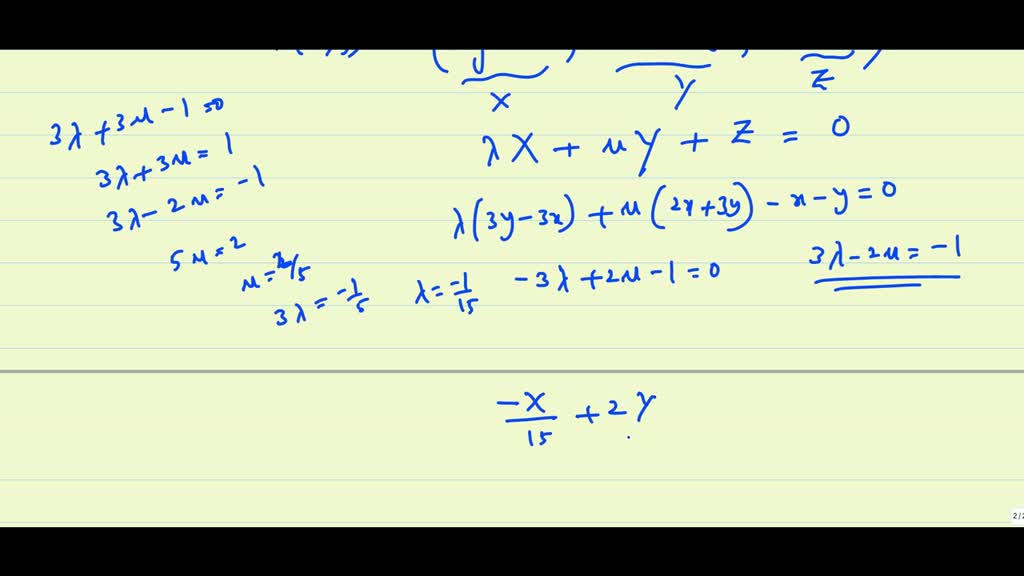 X Y Z
3λ + 3μ - 1 = 0
3λ + 3μ = 1
3λ - 2μ = -1
5μ = 2
μ = 2/5
3λ = -1/5 λ = -1/15
λX + μY + Z = 0
λ(3y - 3x) + μ(2x + 3y) - x - y = 0
-3λ + 2μ - 1 = 0 3λ - 2μ = -1
-X/15 + 2Y
2/2